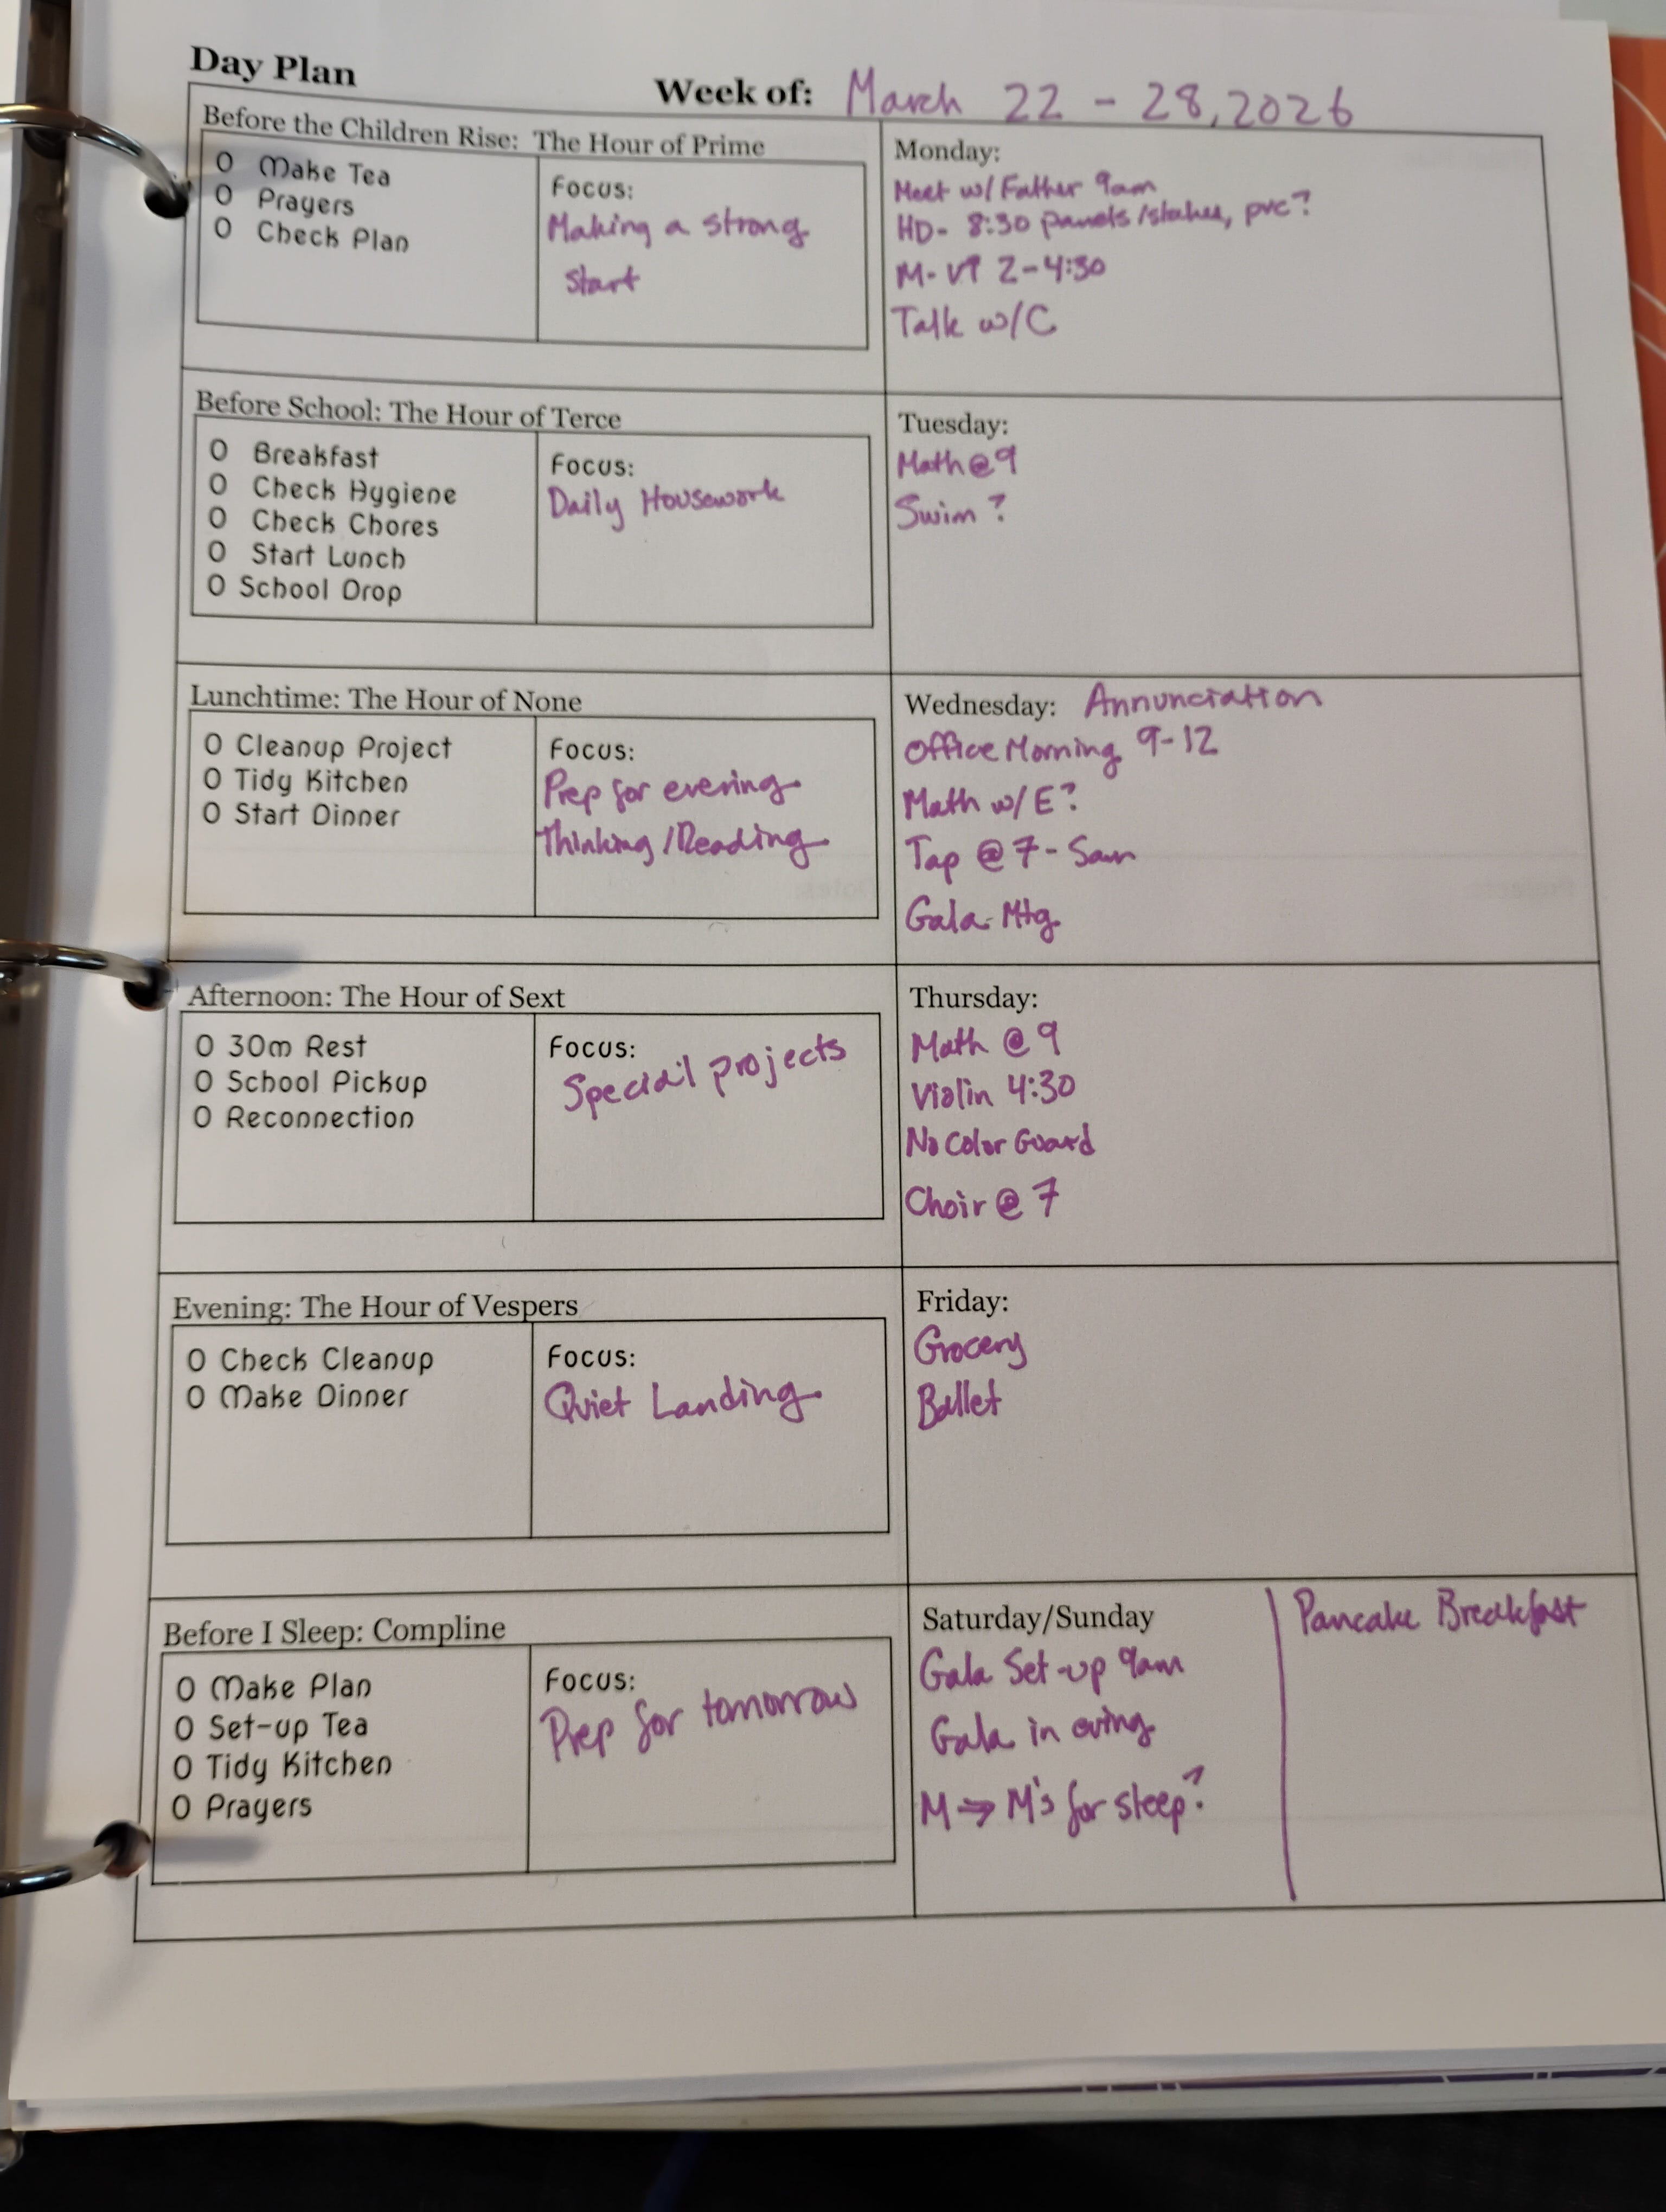 Day Plan
Week of: March 22 - 28, 2026
Before the Children Rise: The Hour of Prime
O Make Tea
O Prayers
O Check Plan
Focus:
Making a strong
start
Monday:
Meet w/ Father 9am
HD- 8:30 panels/stakes, pvc?
M- VT 2-4:30
Talk w/C
Before School: The Hour of Terce
O Breakfast
O Check Hygiene
O Check Chores
O Start Lunch
O School Drop
Focus:
Daily Housework
Tuesday:
Math @ 9
Swim ?
Lunchtime: The Hour of None
O Cleanup Project
O Tidy Kitchen
O Start Dinner
Focus:
Prep for evening
Thinking/Reading
Wednesday: Annunciation
Office Morning 9-12
Math w/ E?
Tap @ 7 - Sam
Gala Mtg
Afternoon: The Hour of Sext
O 30m Rest
O School Pickup
O Reconnection
Focus:
Special projects
Thursday:
Math @ 9
Violin 4:30
No Color Guard
Choir @ 7
Evening: The Hour of Vespers
O Check Cleanup
O Make Dinner
Focus:
Quiet Landing
Friday:
Grocery
Ballet
Before I Sleep: Compline
O Make Plan
O Set-up Tea
O Tidy Kitchen
O Prayers
Focus:
Prep for tomorrow
Saturday/Sunday
Gala Set-up 9am
Gala in eving
M → M's for sleep?
Pancake Breakfast